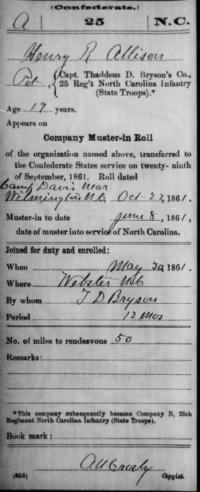 (Confederate.)
A 25 N.C.
Henry R Allison
Pvt, Capt. Thaddeus D. Bryson's Co.,
25 Reg't North Carolina Infantry
(State Troops).*
Age 17 years.
Appears on
Company Muster-in Roll
of the organization named above, transferred to
the Confederate States service on twenty-ninth
of September, 1861. Roll dated
Camp Davis Near
Wilmington N.C. Oct 27, 1861.
Muster-in to date June 8, 1861,
date of muster into service of North Carolina.
Joined for duty and enrolled:
When May 20, 1861.
Where Webster N.C
By whom T D Bryson
Period 12 Mos
No. of miles to rendezvous 50
Remarks:
*This company subsequently became Company B, 25th
Regiment North Carolina Infantry (State Troops).
Book mark:
Copyist.